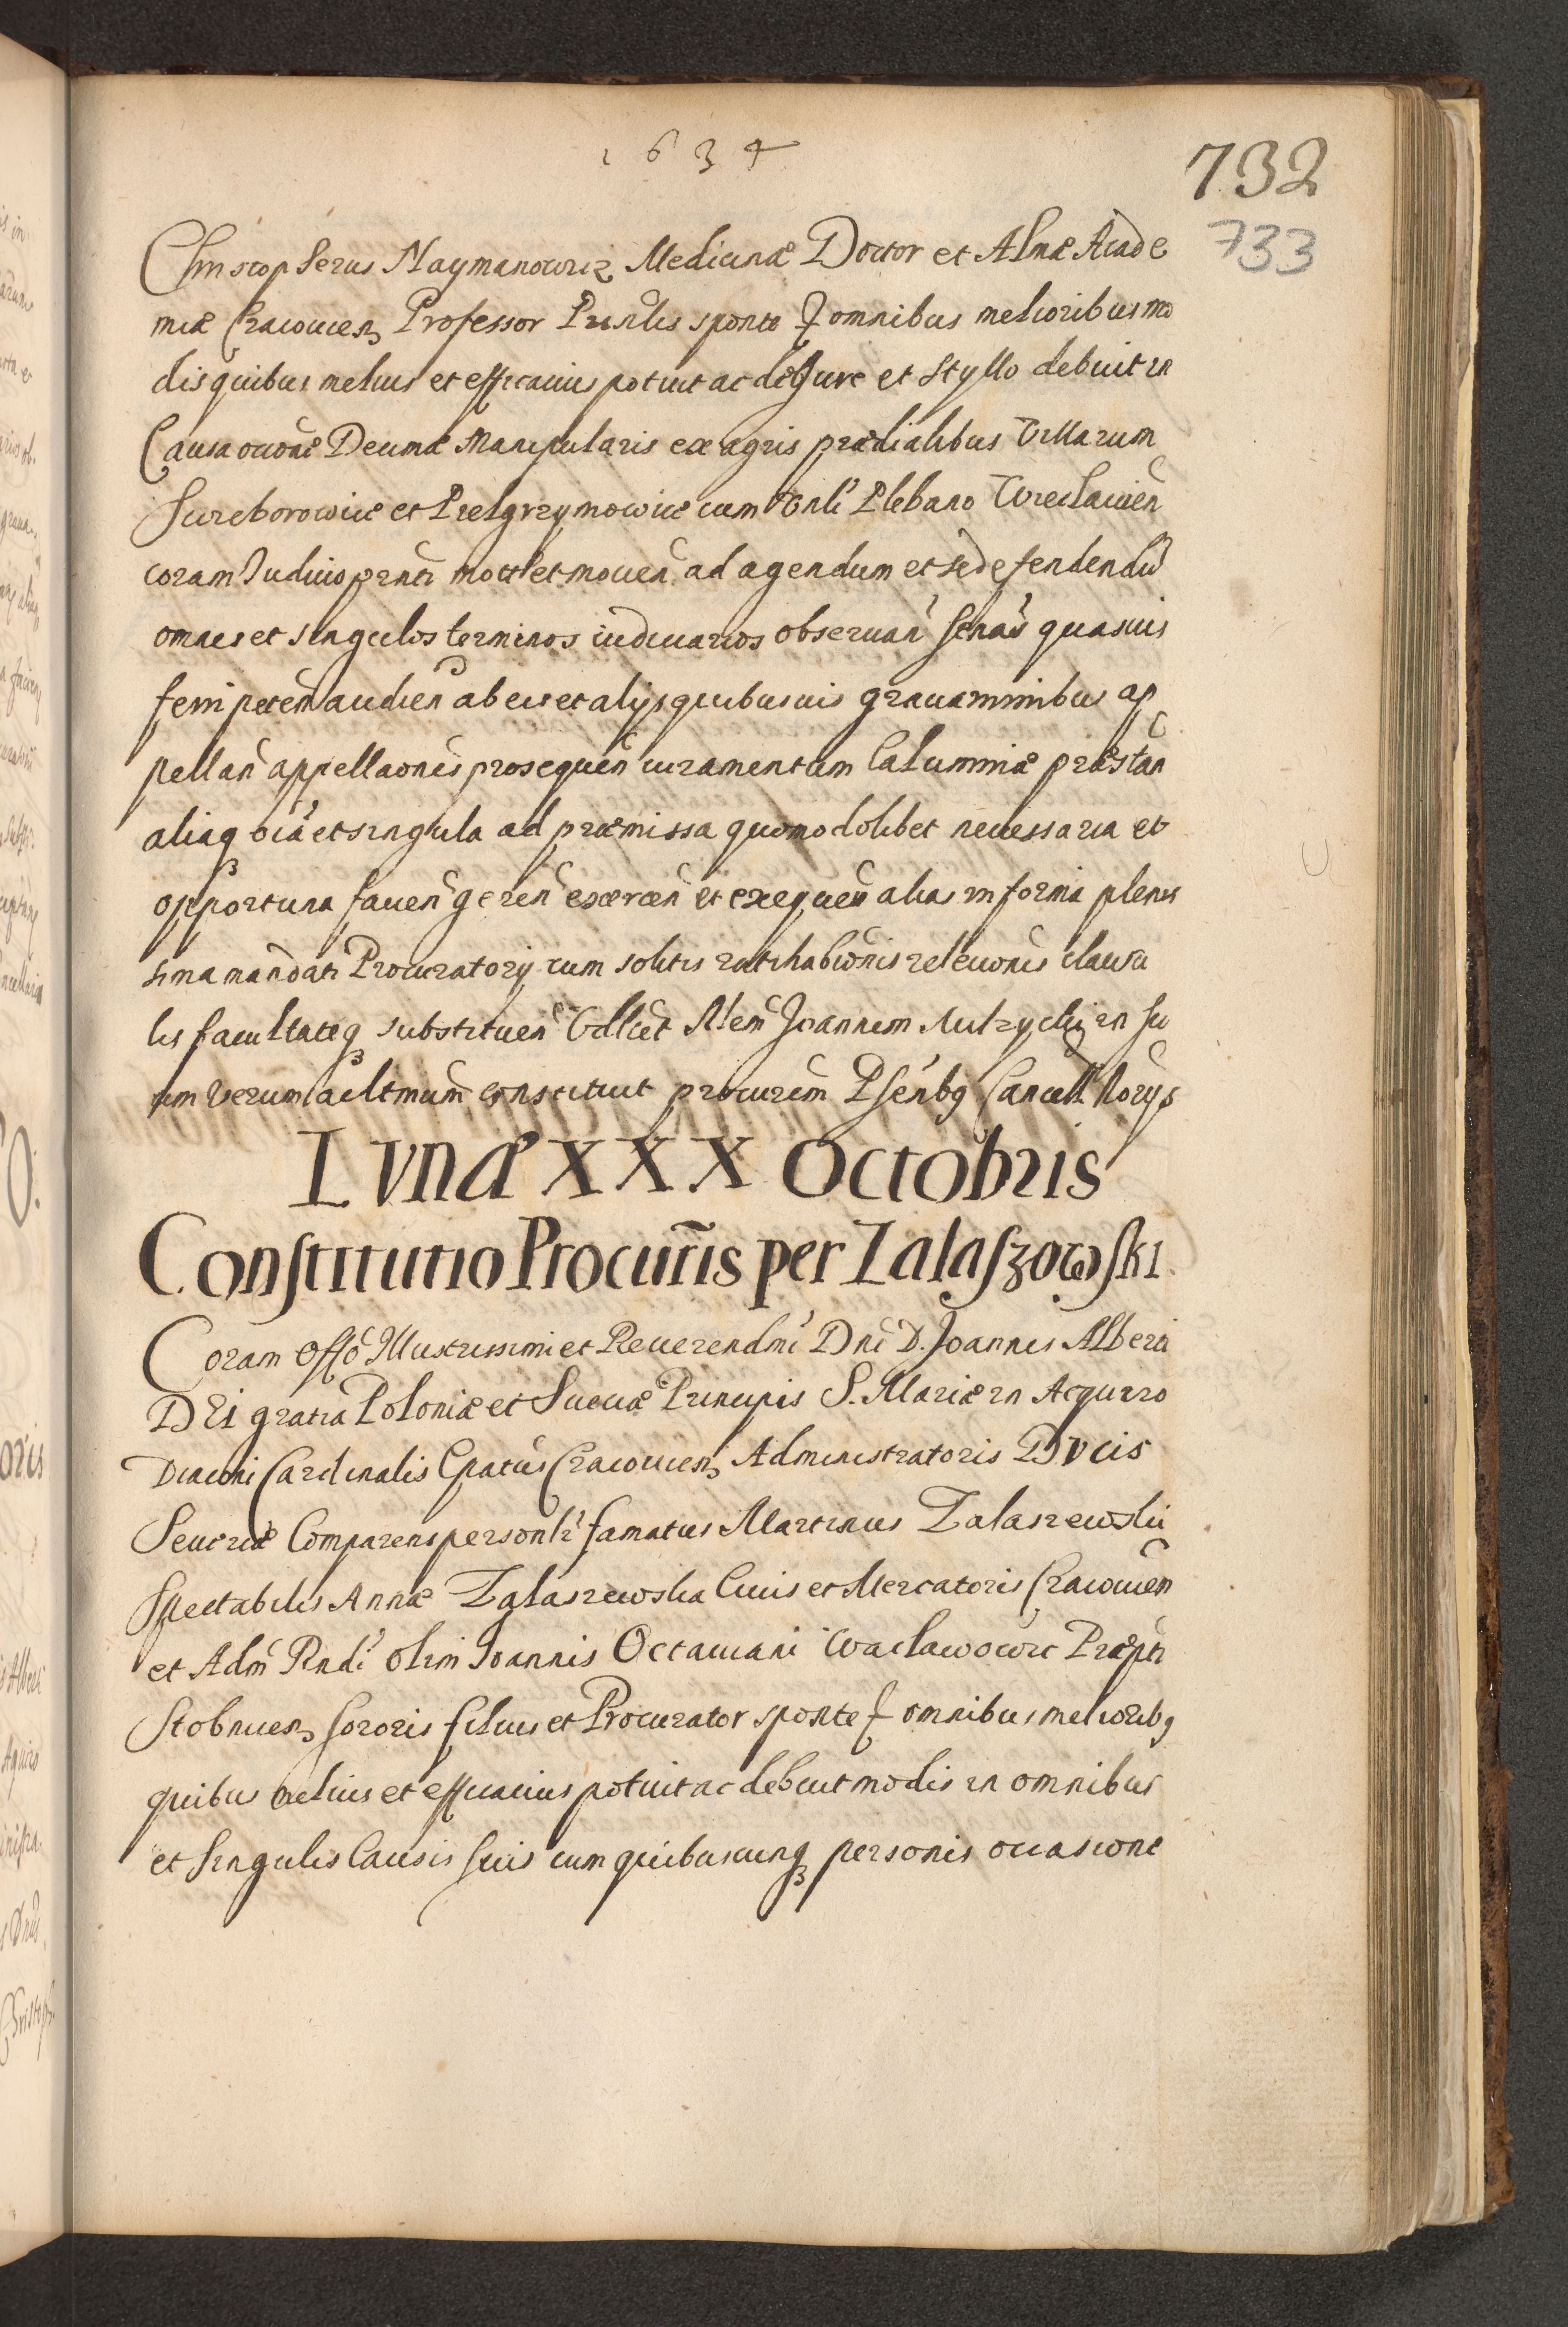 1634
732
733
Christopherus Naymanowicz Medicinæ Doctor et Almæ Acade
miæ Cracouien Professor Pnlis sponte omnibus melioribus mo
dis quibus melius et efficacius potuit ac de Jure et Styllo debuit in
Causa occõne Decimæ Manipularis ex agris prædialibus Villarum
et Pielgrzymowice cum Vnli Plebano Wreclauien
coram Judicio pnti mot et mouen ad agendum et se defendendũ
omnes et singulos terminos iudiciarios obseruan snãs quasuis
ferri peten audien ab eis et alijs quibusuis grauaminibus ap
pellan appellaonēs prosequen iuramentum Calumniæ præstan
aliaq oia et singula ad præmissa quomodolibet necessaria et
opportuna facien geren exercen et exequen alias in forma plenis
sima mandati Procuratorij cum solitis ratihabõnis releuõnis clausu
lis facultateq substituen Joannem in su
um verum ac ltmum constituit procurem Psentbq Cancell Norijs
LVNÆ XXX OCTOBRIS
Constitutio Procuris per Zalaszowski
Coram Offo Illustrissimi et Reuerendmi Dni D. Joannis Alberti
DEI gratia Poloniæ et Sueciæ Principis S. Mariæ in Acquiro
Diaconi Cardinalis Epatus Cracouien Administratoris DVCIS
Seueriæ Comparens personlr famatus Martinus Zalaszewski
Spectabilis Annæ Zalaszewska Ciuis et Mercatoris Cracouien
et Adm Rndi olim Joannis Octauiani Waclawowic Præpti
Stobnicen sororis filius et Procurator sponte omnibus melioribq
quibus melius et efficacius potuit ac debuit modis in omnibus
et singulis Causis suis cum quibuscunq personis occasione